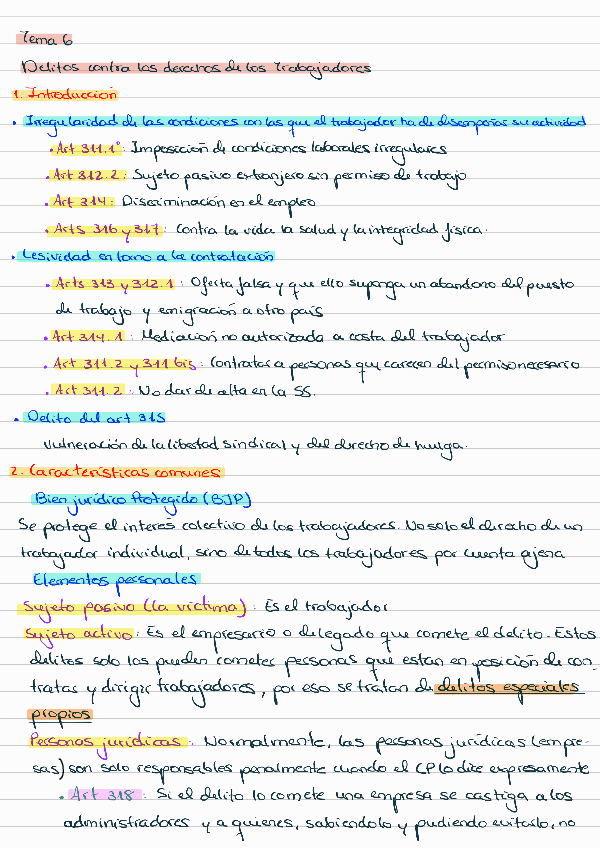 Tema 6
Delitos contra los derechos de los Trabajadores
1. Introducción
• Irregularidad de las condiciones con las que el trabajador ha de desempeñar su actividad
• Art 311.1º: Imposición de condiciones laborales irregulares
• Art 312.2: Sujeto pasivo extranjero sin permiso de trabajo
• Art 314: Discriminación en el empleo
• Arts 316 y 317: Contra la vida la salud y la integridad física.
• Lesividad en torno a la contratación
• Arts 313 y 312.1: Oferta falsa y que ello suponga un abandono del puesto
de trabajo y emigración a otro país
• Art 314.1: Mediación no autorizada a costa del trabajador
• Art 311.2 y 311 bis: Contratar a personas que carecen del permiso necesario
• Art 311.2: No dar de alta en la SS.
• Delito del art 315
Vulneración de la libertad sindical y del derecho de huelga.
2. Características comunes
Bien jurídico Protegido (BJP)
Se protege el interés colectivo de los trabajadores. No solo el derecho de un
trabajador individual, sino de todos los trabajadores por cuenta ajena
Elementos personales
Sujeto pasivo (la víctima): Es el trabajador
Sujeto activo: Es el empresario o delegado que comete el delito. Estos
delitos solo los pueden cometer personas que estan en posición de con-
tratar y dirigir trabajadores, por eso se tratan de delitos especiales
propios
Personas jurídicas: Normalmente, las personas jurídicas (empre-
sas) son solo responsables penalmente cuando el CP lo dice expresamente
• Art 318: Si el delito lo comete una empresa se castiga a los
administradores y a quienes, sabiendolo y pudiendo evitarlo, no